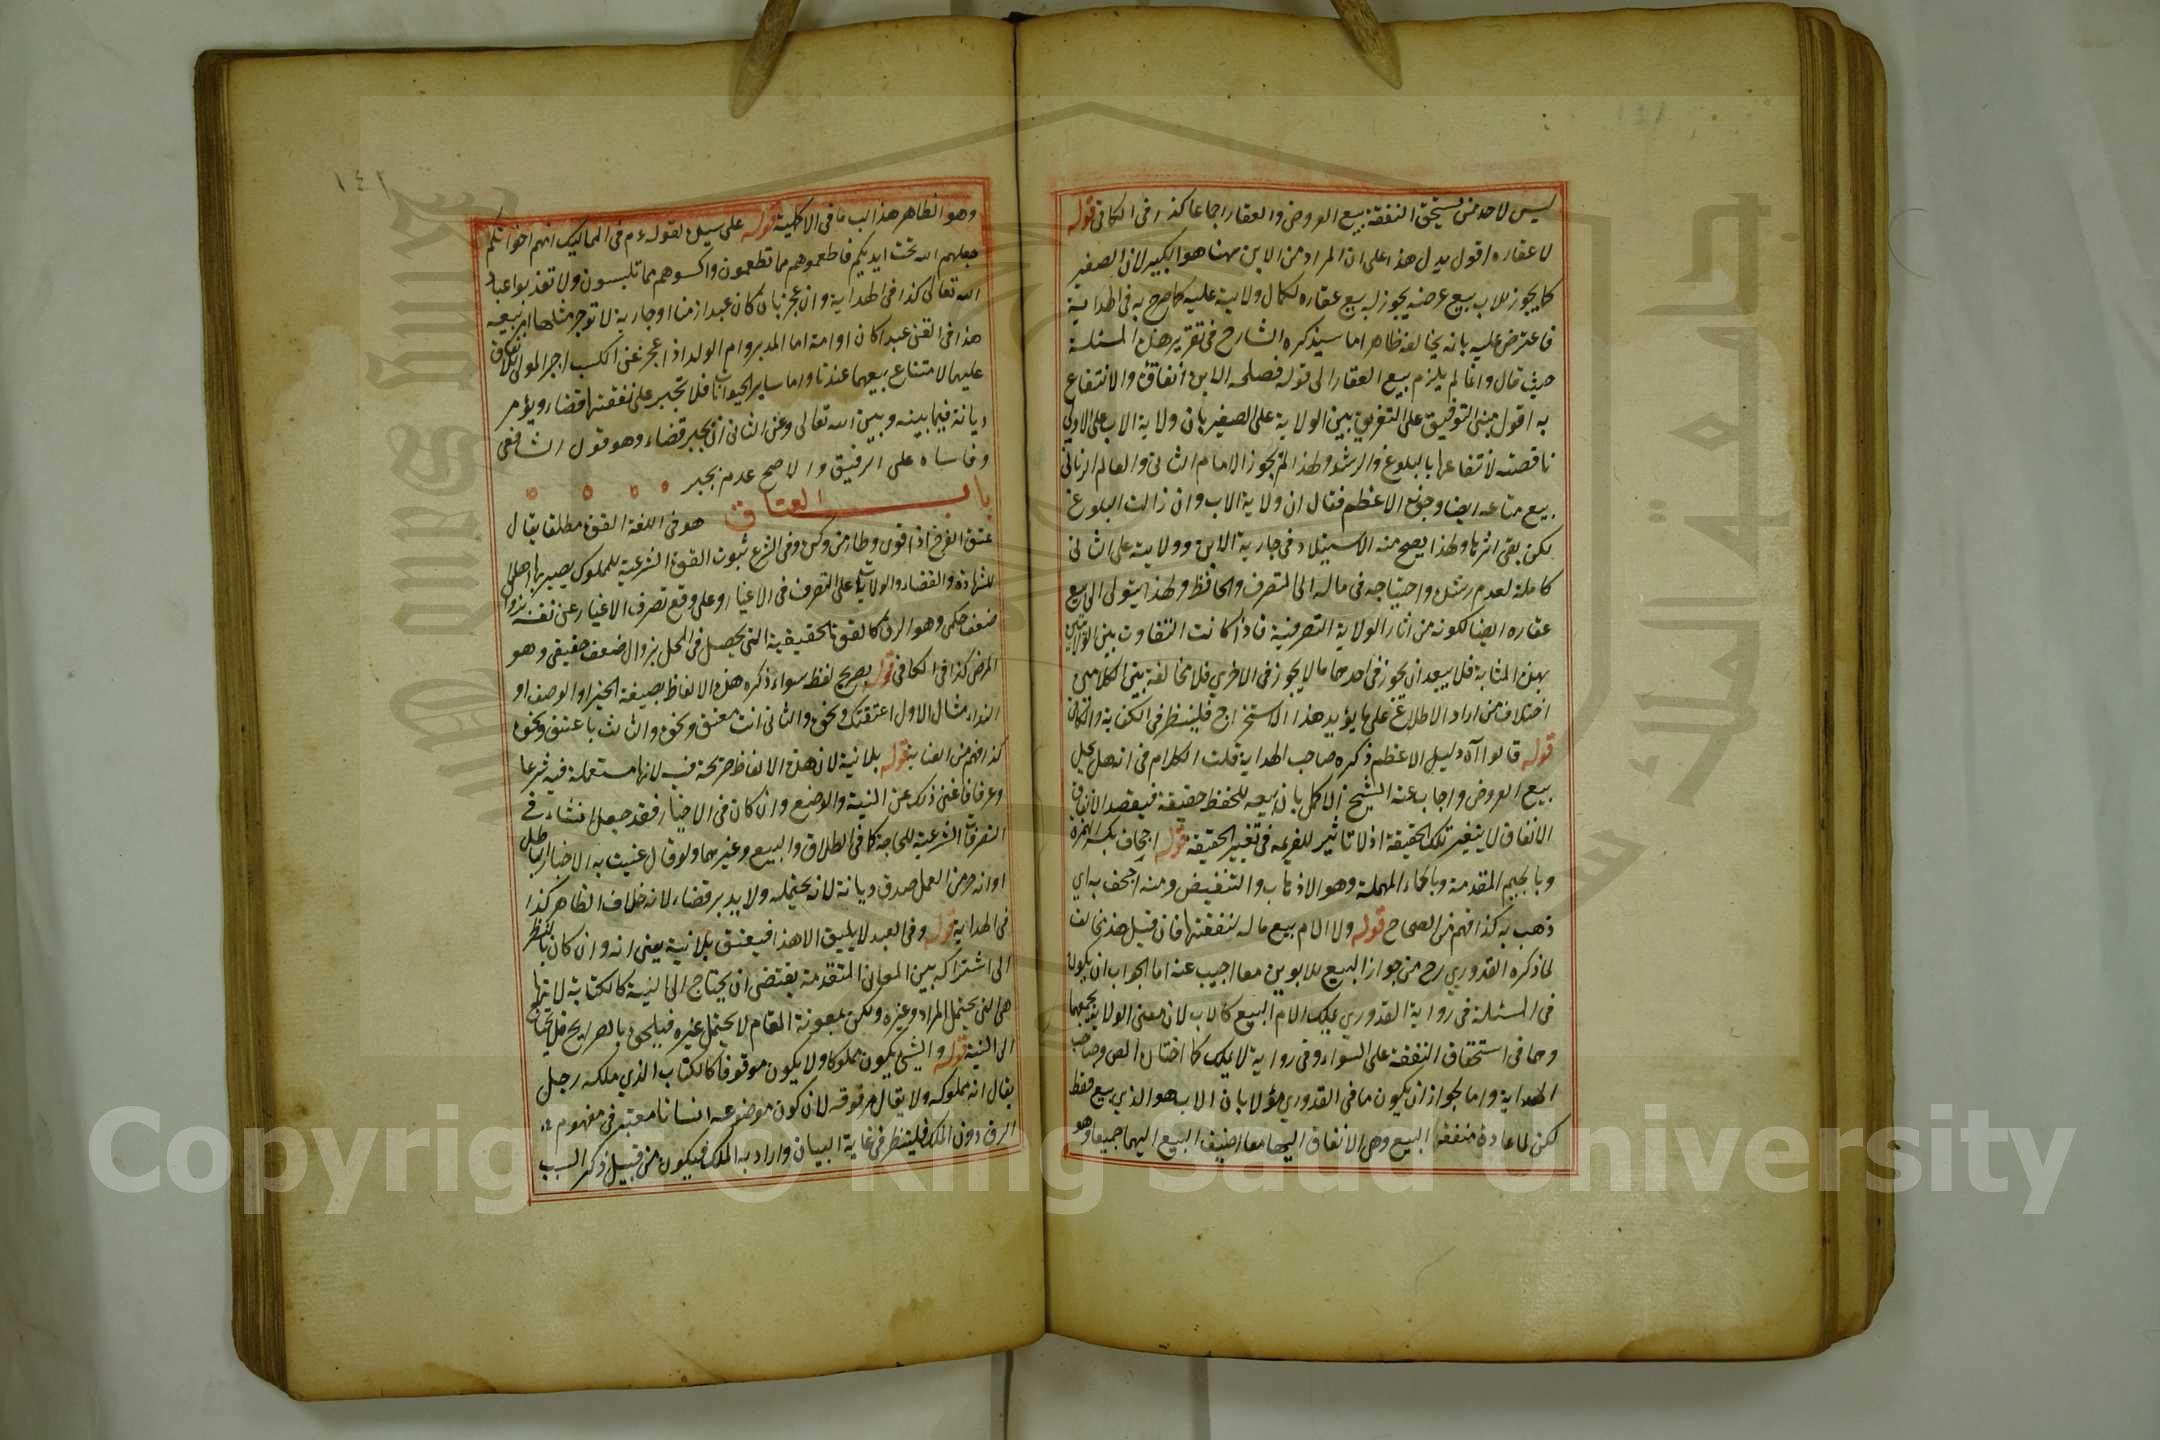 ليس لاحد من يستحق النفقة بيع العروض والعقار اجماعا كذا فى الكافى قوله
لا عقاره اقول يدل هذا على ان المراد من الابن ههنا هو الكبير لان الصغير
كما يجوز للاب بيع عرضه يجوز له بيع عقاره لكمال ولايته عليه كما صرح به فى الهداية
فاعترض عليه بانه يخالفه ظاهرا ما سيذكره الشارح فى تقرير هذه المسئلة
حيث قال وانما لم يلزم بيع العقار الى قوله فصلحه الابن انفاق والانتفاع
به اقول مبنى التوفيق على التفريق بين الولاية على الصغير بان ولاية الاب على الاول
ناقصته لانتفاعها بالبلوغ والرشد ولهذا لم يجوز الامام الثانى والعالم الربانى
بيع متاعه ايضا وجوزه الاعظم فقال ان ولاية الاب وان زالت البلوغ
لكن بقى اثرها ولهذا يصح منه الاستيلاد فى جارية الابن وولايته على الثانى
كاملة لعدم رشده واحتياجه فى ماله الى المتصرف والحافظ ولهذا يتولى الى بيع
عقاره ايضا لكونه من اثار الولاية التصرفية فاذا كانت التفاوت بين الولايتين
بهذه المثابة فلا يبعد ان يجوز فى احدهما ما لا يجوز فى الاخرى فلا مخالفة بين الكلامين
اختلاف من اراد الاطلاع على ما يؤيد هذا الاستخراج فلينظر فى الكفاية والكافى
قوله قالوا آه دليل الاعظم ذكره صاحب الهداية قلت الكلام فى انه هل يحل
بيع العروض واجاب عنه الشيخ الاكمل بان بيعه للحفظ حقيقة فبقصد الانفاق
الانفاق لا يتغير تلك الحقيقة اذ لا تاثير للغريمه فى تغيير الحقيقة قوله اجحاف بكسر الهمزة
وبالجيم المقدمة وبالحاء المهملة وهو الاذهاب والتنقيض ومنه اجحف به اى
ذهب به كذا فهم من الصحاح قوله ولا الام بيع ماله لنفقتها فان قيل هذا مخالف
لما ذكره القدوري رح من جواز البيع للابوين معا اجيب عنه اما الجواب ان يكون
فى المسئلة فى رواية القدوري يملك الام البيع كالاب لان معنى الولاية يجمعهما
وهما فى استحقاق النفقة على السواء وفى رواية لا يملك كما اختاره المص وصاحب
الهداية واما لجواز ان يكون ما فى القدوري مؤلا بان الاب هو الذي يبيع فقط
لكن لما عادة منفعة البيع وهى الانفاق اليهما معا اضيف البيع اليهما جميعا وهو
١٤٢
وهو الظاهر هذا لب ما فى الاكملية قوله على سيده لقوله ءم فى المماليك انهم اخوانكم
جعلهم الله تحت ايديكم فاطعموهم مما تطعمون واكسوهم مما تلبسون ولا تعذبوا عباد
الله تعالى كذا فى الهداية وان عجز بان كان عبدا زمنا او جارية لا توجر مثلها امر ببيعه
هذا فى القن عبدا كان او امة اما المدبر وام الولد اذا عجز عن الكسب اجبر المولى بالانفاق
عليهما لامتناع بيعهما عندنا واما ساير الحيوانات فلا تجبر على نفقتها قضاء ويؤمر
ديانة فيما بينه وبين الله تعالى وعن الثانى انه يجبر قضاء وهو قول الشافعى
وقاساه على الرقيق والاصح عدم يجبر
باب العتاق هو فى اللغة القوة مطلقا يقال
عتق الفرخ اذا قوى وطار من وكره وفى الشرع ثبوت القوة الشرعية للمملوك يصير بها اهلا
للشهادة والقضاء والولايات على التصرف فى الاغيار وعلى دفع تصرف الاغيار عن نفسه بزوال
ضعف حكمى وهو الرق كالقوة الحقيقية التى يحصل فى المحل بزوال ضعف حقيقى وهو
المرض كذا فى الكافى قوله بصريح لفظ سواء ذكره هذه الالفاظ بصيغة الخبر او الوصف او
النداء مثال الاول اعتقتك ونحوه والثانى انت معتق ونحوه والثالث يا عتيق ونحوه
كذا فهم من الغاية قوله بلا نية لان هذه الالفاظ صريحة فيه لانها مستعملة فيه شرعا
وعرفا فاغنى ذلك عن النية والوضع وان كان فى الاخبار فقد جعل انشاء فى
التصرفات الشرعية للحاجة كما فى الطلاق والبيع وغيرهما ولو قال عنيت به الاخبار الباطل
او انه حر من العمل صدق ديانة لانه يحتمله ولا يدبر قضاء لانه خلاف الظاهر كذا
فى الهداية قوله وفى العبد لا يليق الا هذا فيعتق بلا نية يعنى انه وان كان بالنظر
الى اشتراكه بين المعانى المتقدمة يقتضى ان يحتاج الى النية كالكناية لانها
هى التى يحتمل المراد وغيره ولكن بمعونة المقام لا يحتمل غيره فيلحق بالصرايح فلا يحتاج
الى النية قوله والشئ يكون مملوكا ولا يكون موقوفا كالكتاب الذي ملكه رجل
يقال انه مملوكه ولا يقال مرقوقه لان كون موضوعه انسانا معتبر فى مفهوم
الرق دون الملك فلينظر فى غاية البيان واراد به الملك فيكون من قبيل ذكر السبب
Copyright © King Saud University